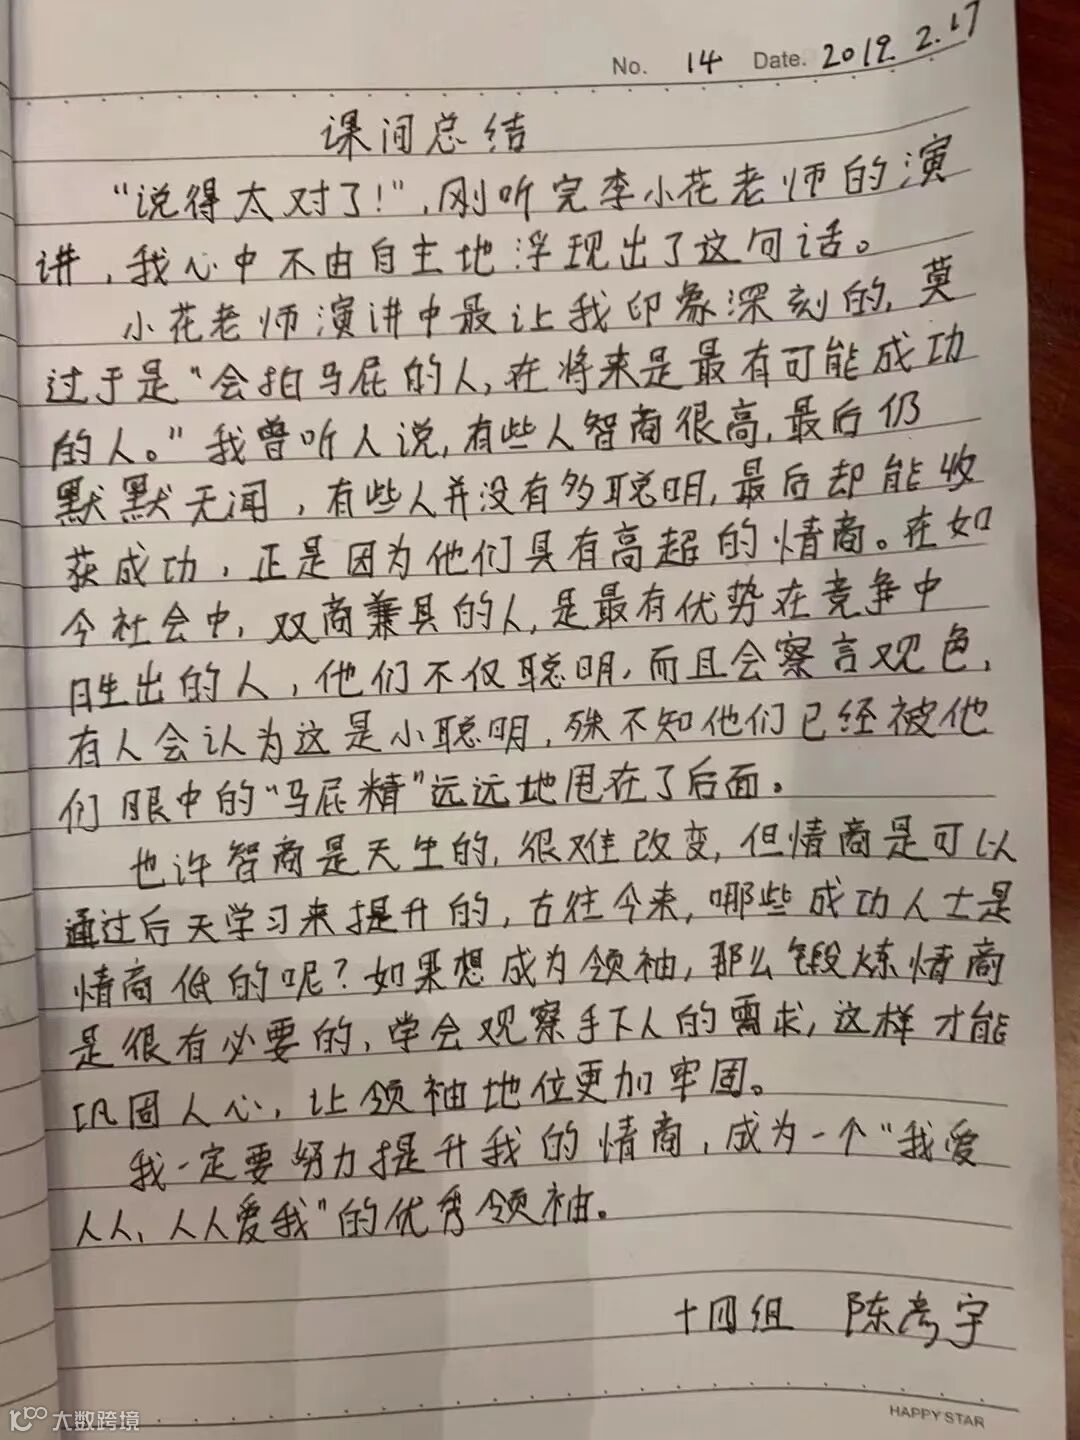 No. 14 Date. 2019.2.17
课间总结
“说得太对了!”,刚听完李小花老师的演
讲,我心中不由自主地浮现出了这句话。
小花老师演讲中最让我印象深刻的,莫
过于是“会拍马屁的人,在将来是最有可能成功
的人。”我曾听人说,有些人智商很高,最后仍
默默无闻,有些人并没有多聪明,最后却能收
获成功,正是因为他们具有高超的情商。在如
今社会中,双商兼具的人,是最有优势在竞争中
胜出的人,他们不仅聪明,而且会察言观色,
有人会认为这是小聪明,殊不知他们已经被他
们眼中的“马屁精”远远地甩在了后面。
也许智商是天生的,很难改变,但情商是可以
通过后天学习来提升的,古往今来,哪些成功人士是
情商低的呢?如果想成为领袖,那么锻炼情商
是很有必要的,学会观察手下人的需求,这样才能
巩固人心,让领袖地位更加牢固。
我一定要努力提升我的情商,成为一个“我爱
人人,人人爱我”的优秀领袖。
十四组 陈彦宇
HAPPY STAR
大数跨境